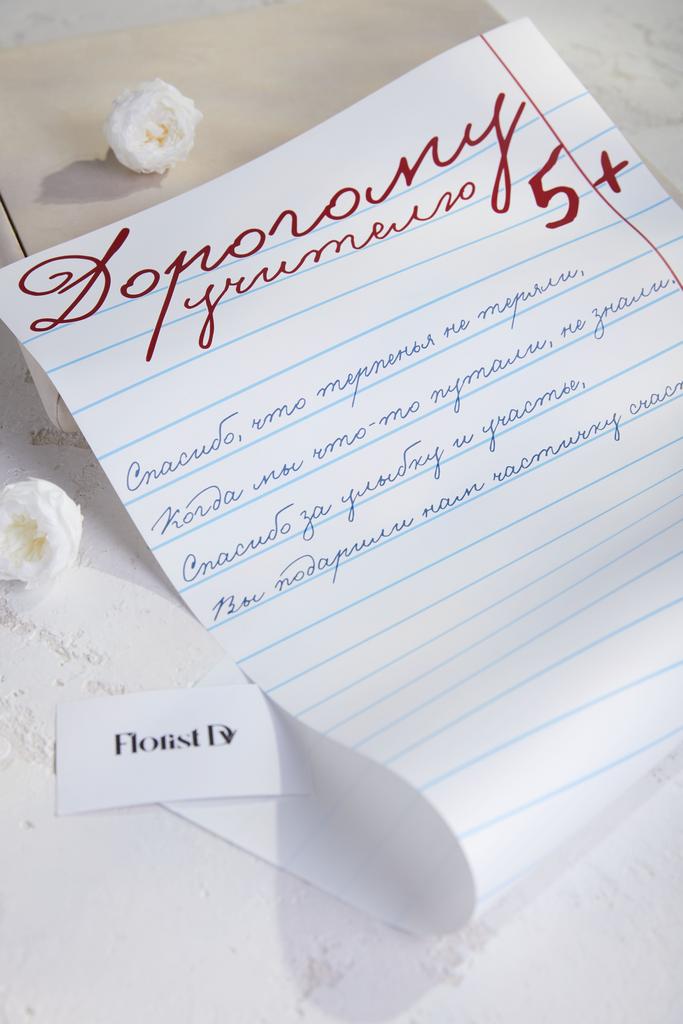 Дорогому
учителю
5+
Спасибо, что терпенья не теряли,
Когда мы что-то путали, не знали.
Спасибо за улыбку и участье,
Вы подарили нам частичку счаст
Florist Dv